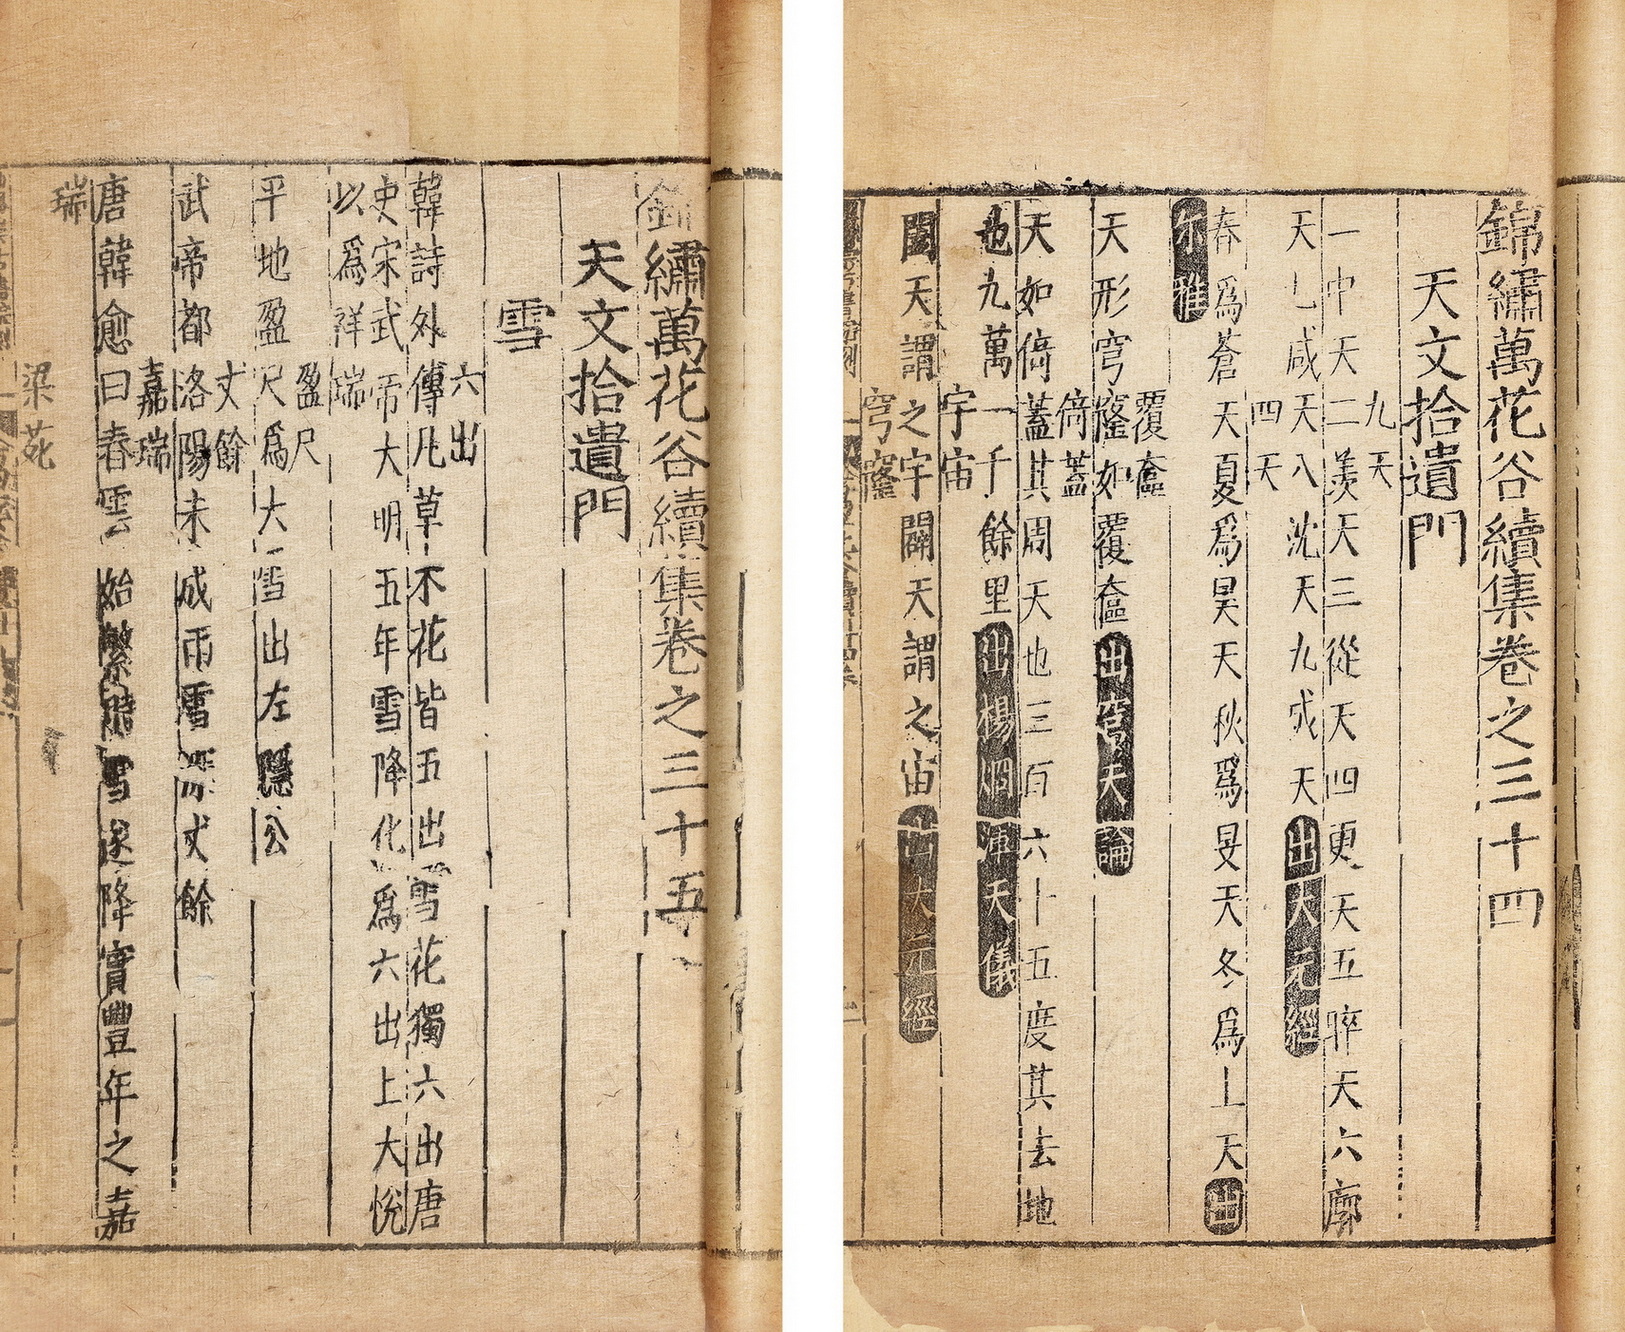 錦繡萬花谷續集卷之三十四
天文拾遺門
九天
一中天二羨天三從天四更天五晬天六廓
天七咸天八沈天九成天出太元經
四天
春爲蒼天夏爲昊天秋爲旻天冬爲上天出
尔雅
覆奩
天形穹窿如覆奩出穹天論
倚蓋
天如倚蓋其周天也三百六十五度其去地
也九萬一千餘里出楊烱渾天儀
宇宙
闔天謂之宇闢天謂之宙出太元經
穹窿
錦繡萬花谷續集卷之三十五
天文拾遺門
雪
六出
韓詩外傳凡草木花皆五出雪花獨六出唐
史宋武帝大明五年雪降化爲六出上大悅
以爲祥瑞
盈尺
平地盈尺爲大雪出左隱公
丈餘
武帝都洛陽未成雨雪深丈餘
嘉瑞
唐韓愈曰春雲始繁時雪遂降實豐年之嘉
瑞
梁苑